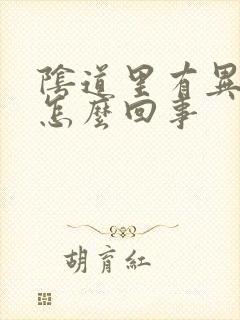 陰道里有異
怎麼回事
胡育紅